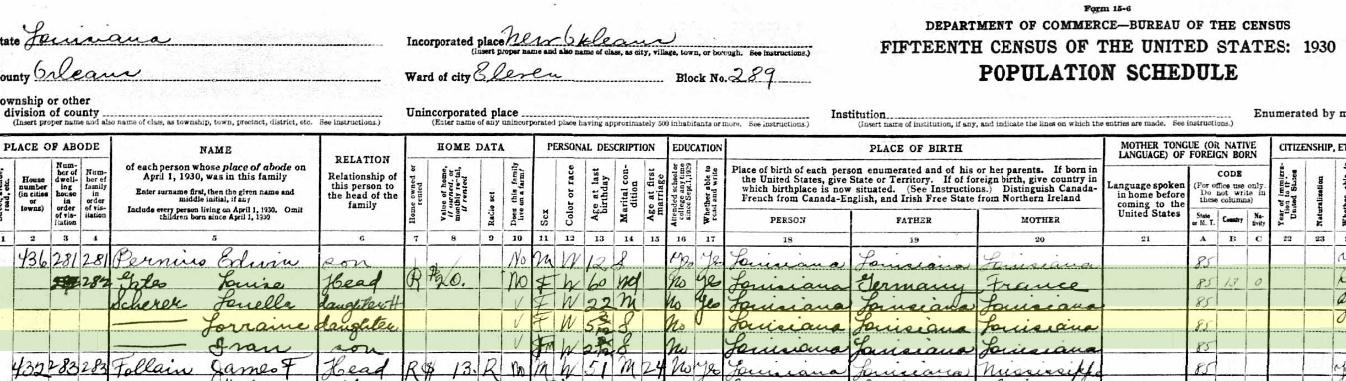 Form 15-6
tate Louisiana
Incorporated place New Orleans
DEPARTMENT OF COMMERCE—BUREAU OF THE CENSUS
(Insert proper name and also name of class, as city, village, town, or borough. See instructions.)
FIFTEENTH CENSUS OF THE UNITED STATES: 1930
ounty Orleans
Ward of city Eleven Block No. 289
POPULATION SCHEDULE
ownship or other
division of county
Unincorporated place
Institution
Enumerated by m
(Insert proper name and also name of class, as township, town, precinct, district, etc. See instructions.)
(Enter name of any unincorporated place having approximately 500 inhabitants or more. See instructions.)
(Insert name of institution, if any, and indicate the lines on which the entries are made. See instructions.)
PLACE OF ABODE
House number (in cities or towns)
Number of dwelling house in order of visitation
Number of family in order of visitation
NAME
of each person whose place of abode on April 1, 1930, was in this family
Enter surname first, then the given name and middle initial, if any
Include every person living on April 1, 1930. Omit children born since April 1, 1930
RELATION
Relationship of this person to the head of the family
HOME DATA
Home owned or rented
Value of home, if owned, or monthly rental, if rented
Radio set
Does this family live on a farm?
PERSONAL DESCRIPTION
Sex
Color or race
Age at last birthday
Marital condition
Age at first marriage
EDUCATION
Attended school or college any time since Sept. 1, 1929
Whether able to read and write
PLACE OF BIRTH
Place of birth of each person enumerated and of his or her parents. If born in the United States, give State or Territory. If of foreign birth, give country in which birthplace is now situated. (See Instructions.) Distinguish Canada-French from Canada-English, and Irish Free State from Northern Ireland
PERSON FATHER MOTHER
MOTHER TONGUE (OR NATIVE LANGUAGE) OF FOREIGN BORN
Language spoken in home before coming to the United States
CODE
(For office use only. Do not write in these columns)
State or M. T. Country Nativity
CITIZENSHIP, ET
Naturalization
1 2 3 4 5 6 7 8 9 10 11 12 13 14 15 16 17 18 19 20 21 A B C 22 23
436 281 281 Edwin son No M W 12 S No Yes Louisiana Louisiana Louisiana 85
282 Louise Head R $20. No F W 60 No Yes Louisiana Germany France 85 13 0
Scherer Louella daughter F W 22 M No Yes Louisiana Louisiana Louisiana 85
Lorraine daughter F W S No Louisiana Louisiana Louisiana 85
Ivan son W S No Louisiana Louisiana Louisiana 85
432 283 283 Follain James F Head R $ 13. R No M W 51 M 24 No Yes Louisiana Louisiana Mississippi 85